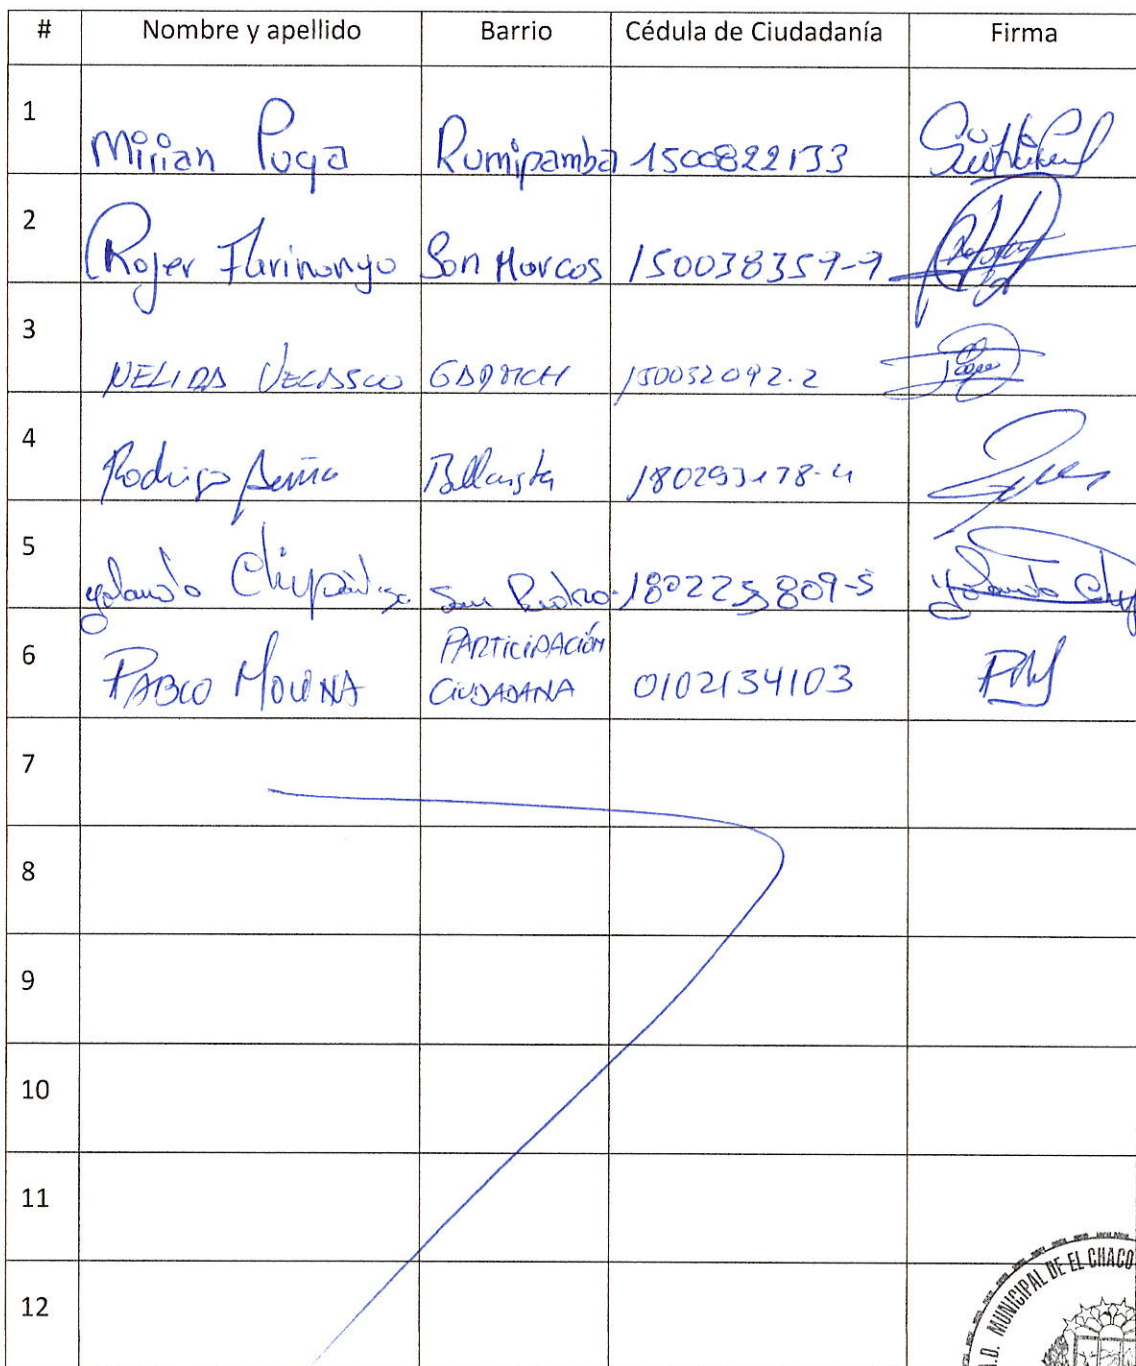 # Nombre y apellido Barrio Cédula de Ciudadanía Firma
1 Mirian Puga Rumipamba 1500822133
2 Roger San Marcos 150038359-9
3 NELIDA VELASSCO GADMCH 150032092-2
4 Rodrigo 180293178-4
5 yolanda San Pedro 180225809-5 yolanda
6 PABLO MOLINA PARTICIPACIÓN CIUDADANA 0102134103 PM
7
8
9
10
11
12
MUNICIPAL DE EL CHACO